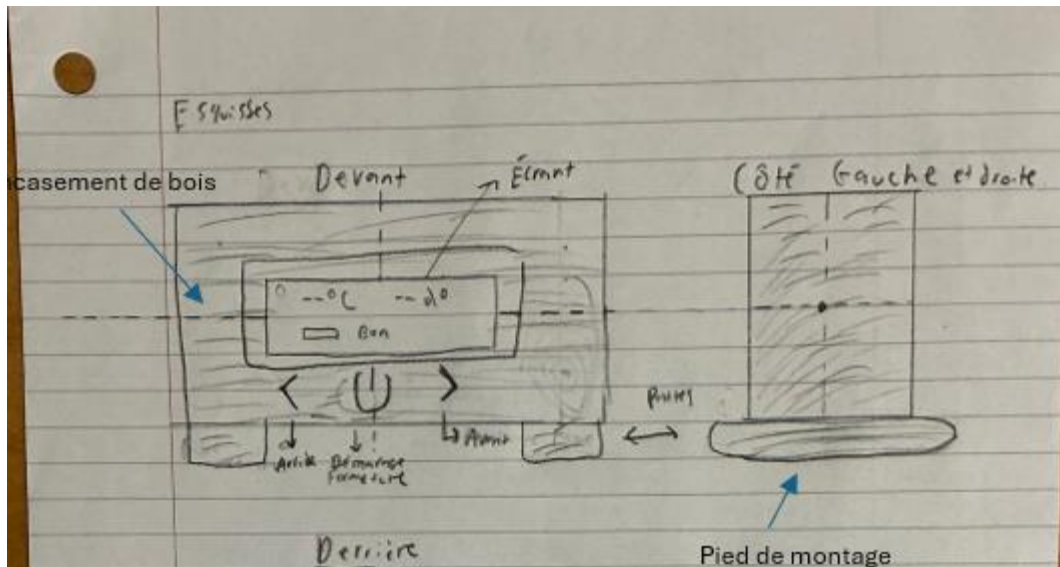 Esquisses
casement de bois
Devant
Écrant
Côté Gauche et droite
--°C
Bon
Avant
Démarage
Fermeture
Derrière
Pied de montage